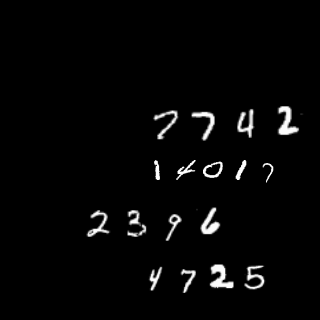 7742
14017
2396
4725